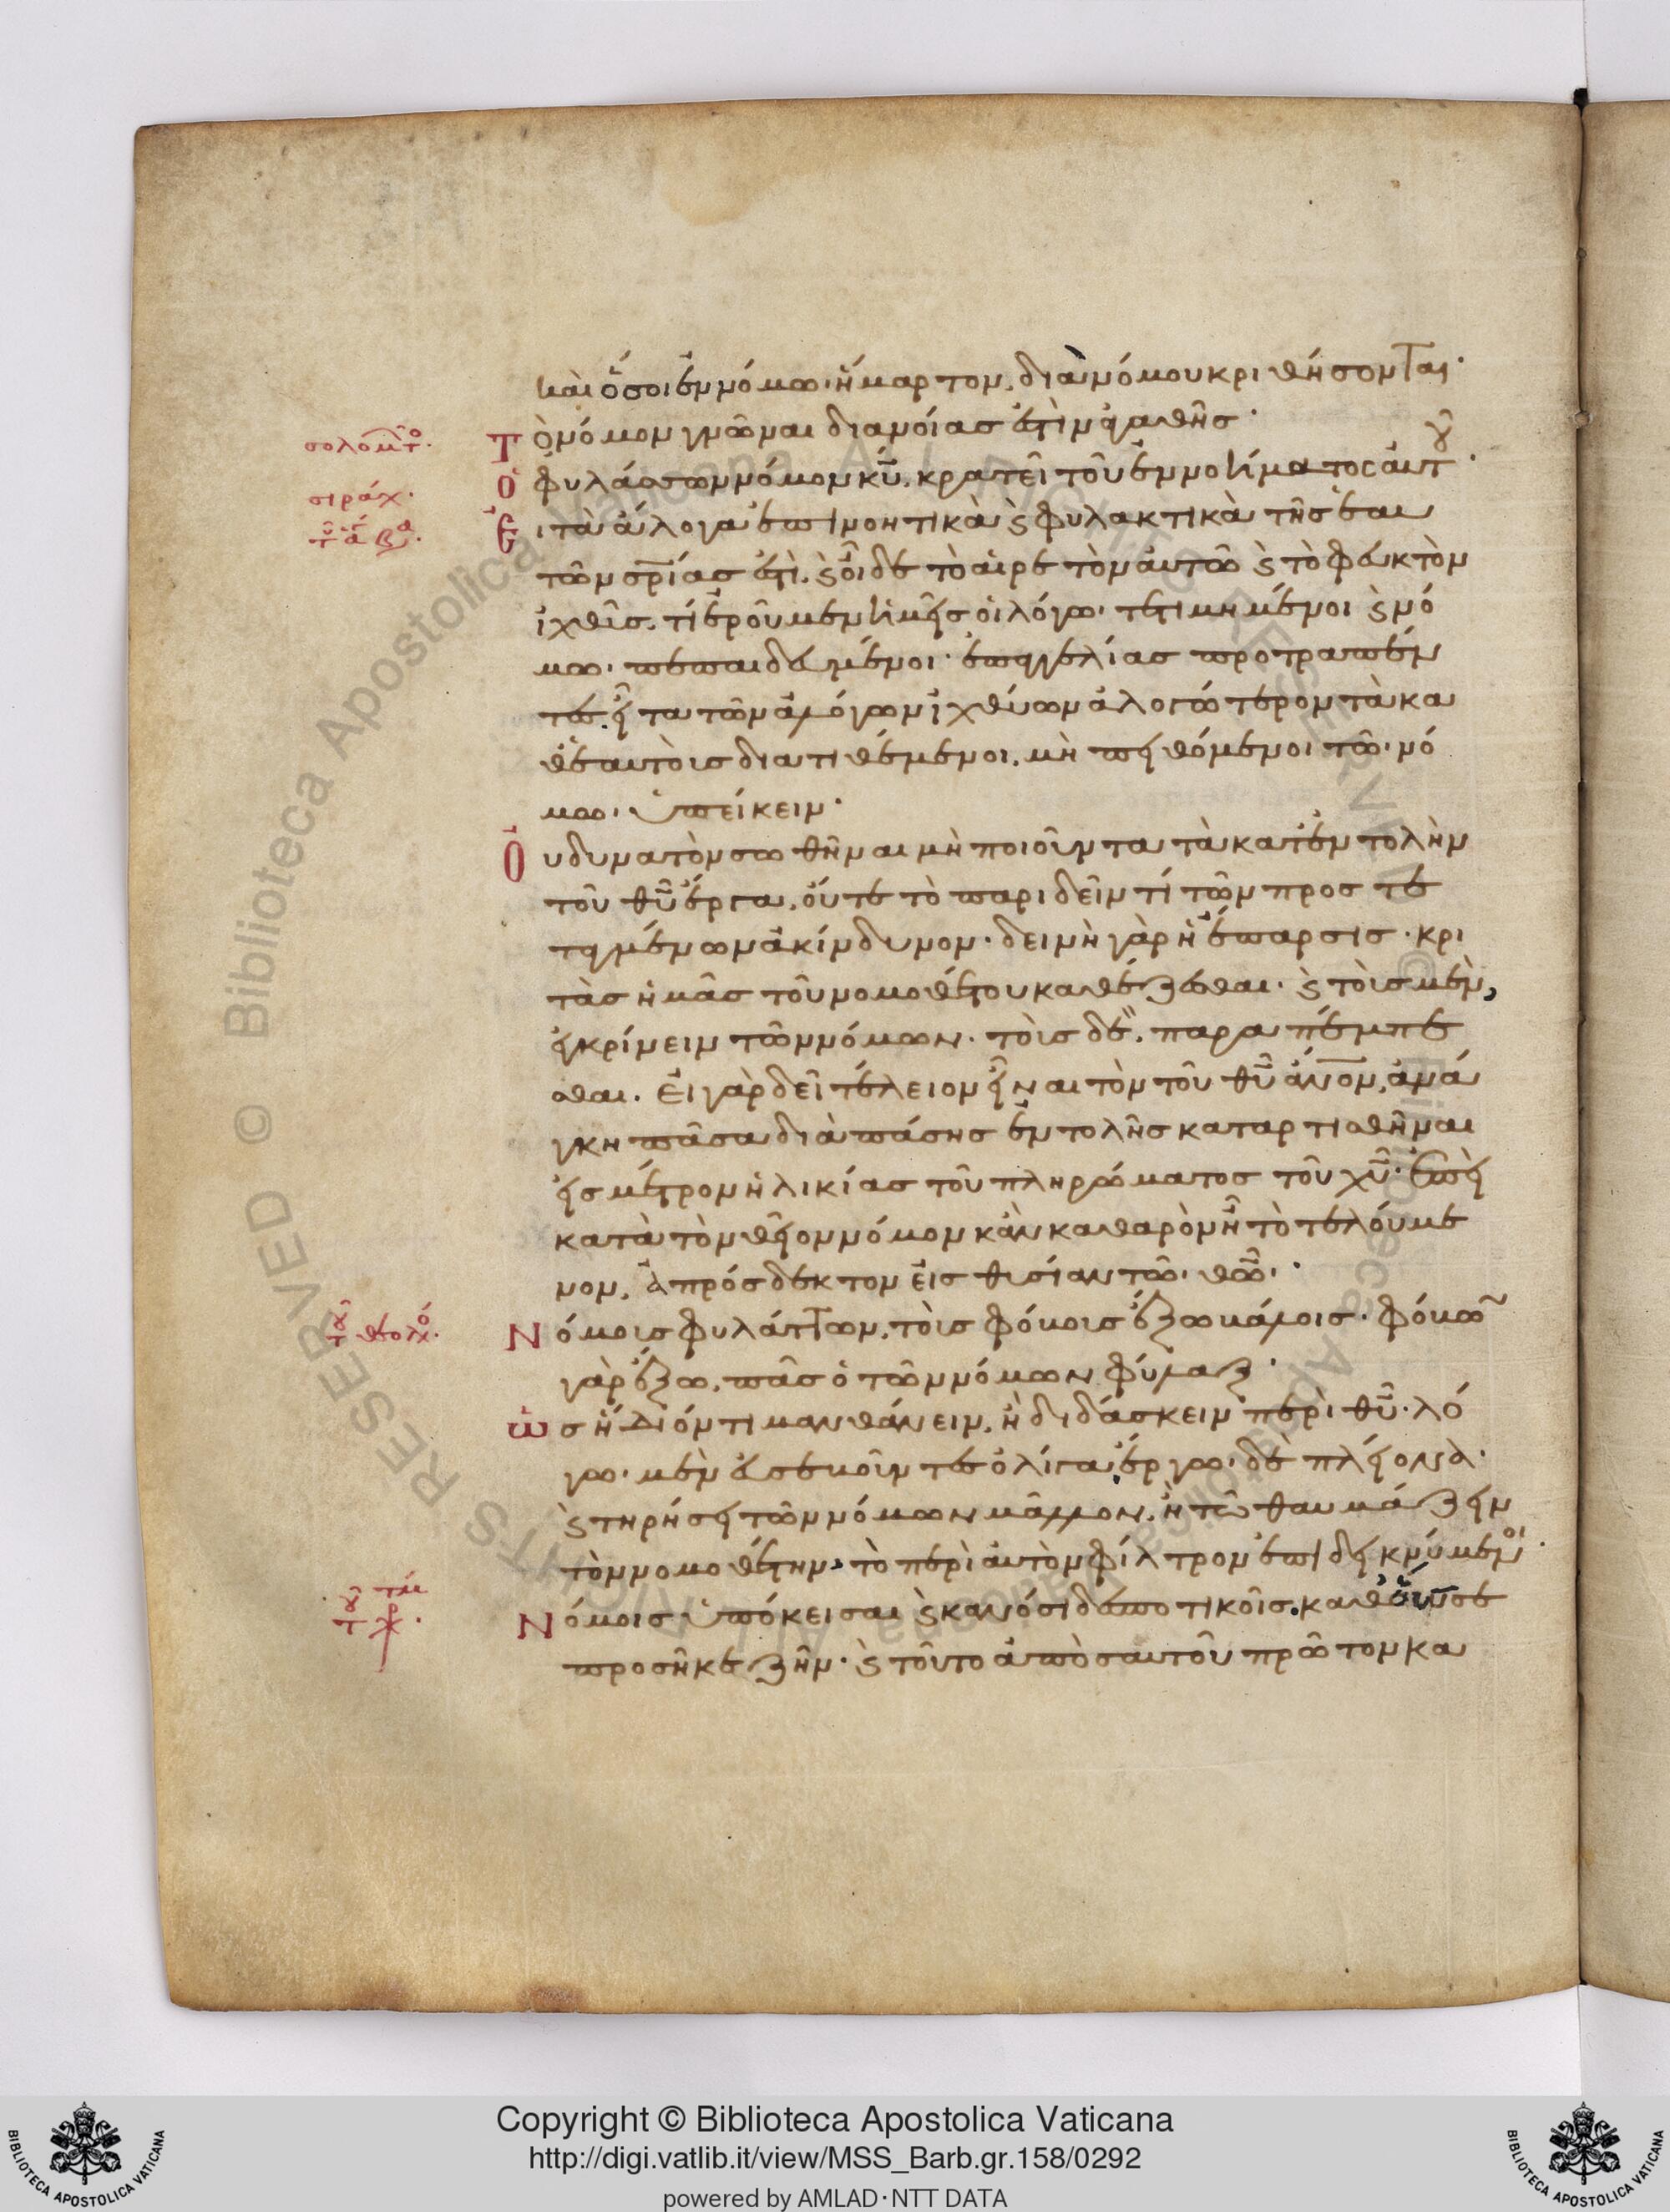 καὶ ὅσοι ἐν νόμω ἥμαρτον, διὰ νόμου κριθήσονται·
σολομῶντο.
Τὸ νόμον γνῶναι διανοίας ἐστὶν ἀγαθῆς·
σιράχ.
Ὁ φυλάσσων νόμον κυ̅, κρατεῖ τοῦ ἐννοήματος αὐτοῦ·
Εἰ τὰ ἄλογα ἐπινοητικὰ καὶ φυλακτικὰ τῆς ἑαυ
τῶν σρ̅ίας ἐστὶ, καὶ οἶδε τὸ αἱρετὸν αὐτῶ καὶ τὸ φευκτὸν
ἰχθῦς, τί ἐροῦμεν ἡμεῖς οἱ λόγω τετιμημένοι καὶ νό
μω πεπαιδευμένοι· ἐπαγγελίας προτραπέν
τες, εἶτα τῶν ἀλόγων ἰχθύων ἀλογώτερον τὰ κα
θ' ἑαυτοῖς διατιθέμενοι, μὴ πειθόμενοι τῶ νό
μω ὑπείκειν·
Οὐ δυνατὸν σωθῆναι μὴ ποιοῦντα τὰ κατ' ἐντολὴν
τοῦ θυ̅ ἔργα, οὔτε τὸ παριδεῖν τί τῶν προστε
ταγμένων ἀκίνδυνον· δεινὴ γὰρ ἡ ἔπαρσις· κρι
τὰς ἡμᾶς τοῦ νομοθέτου καθέζεσθαι· καὶ τοῖς μὲν,
ἐγκρίνειν τῶν νόμων· τοῖς δὲ, παραπέμπε
σθαι. Εἰ γὰρ δεῖ τέλειον εἶναι τὸν τοῦ θυ̅ ἄνο̅ν, ἀνά
γκη πᾶσα διὰ πάσης ἐντολῆς καταρτισθῆναι
εἰς μέτρον ἡλικίας τοῦ πληρώματος τοῦ χυ̅· ἐπεὶ
κατὰ τὸν θεῖον νόμον κἂν καθαρὸν ἦ τὸ τελούμε
νον, ἀπρόσδεκτον εἰς θυσίαν τῶ θω̅·
τοῦ θεολό.
Νόμοις φυλάττων, τοῖς φόβοις ἔξω βάλοις· φόβω
γὰρ ἔξω, πᾶς ὁ τῶν νόμων φύλαξ·
Ὡς ἥδιόν τι μανθάνειν, ἢ διδάσκειν περὶ θυ̅· λό
γω μὲν εὐσεβοῦντες ὀλίγα ἔργω δὲ πλείονα·
καὶ τηρήσει τῶν νόμων μᾶλλον, ἢ τῶ θαυμάζειν
τὸν νομοθέτην, τὸ περὶ αὐτὸν φίλτρον ἐπιδεικνύμενοι·
Νόμοις ὑπόκεισαι καὶ κανόσι δεσποτικοῖς, καθ' οὕς σε
προσῆκε ζῆν· καὶ τοῦτο ἀπὸ σαυτοῦ πρῶτον κα
Copyright © Biblioteca Apostolica Vaticana
http://digi.vatlib.it/view/MSS_Barb.gr.158/0292
powered by AMLAD·NTT DATA
BIBLIOTECA APOSTOLICA VATICANA
BIBLIOTECA APOSTOLICA VATICANA
Biblioteca Apostolica Vaticana ALL RIGHTS RESERVED ©